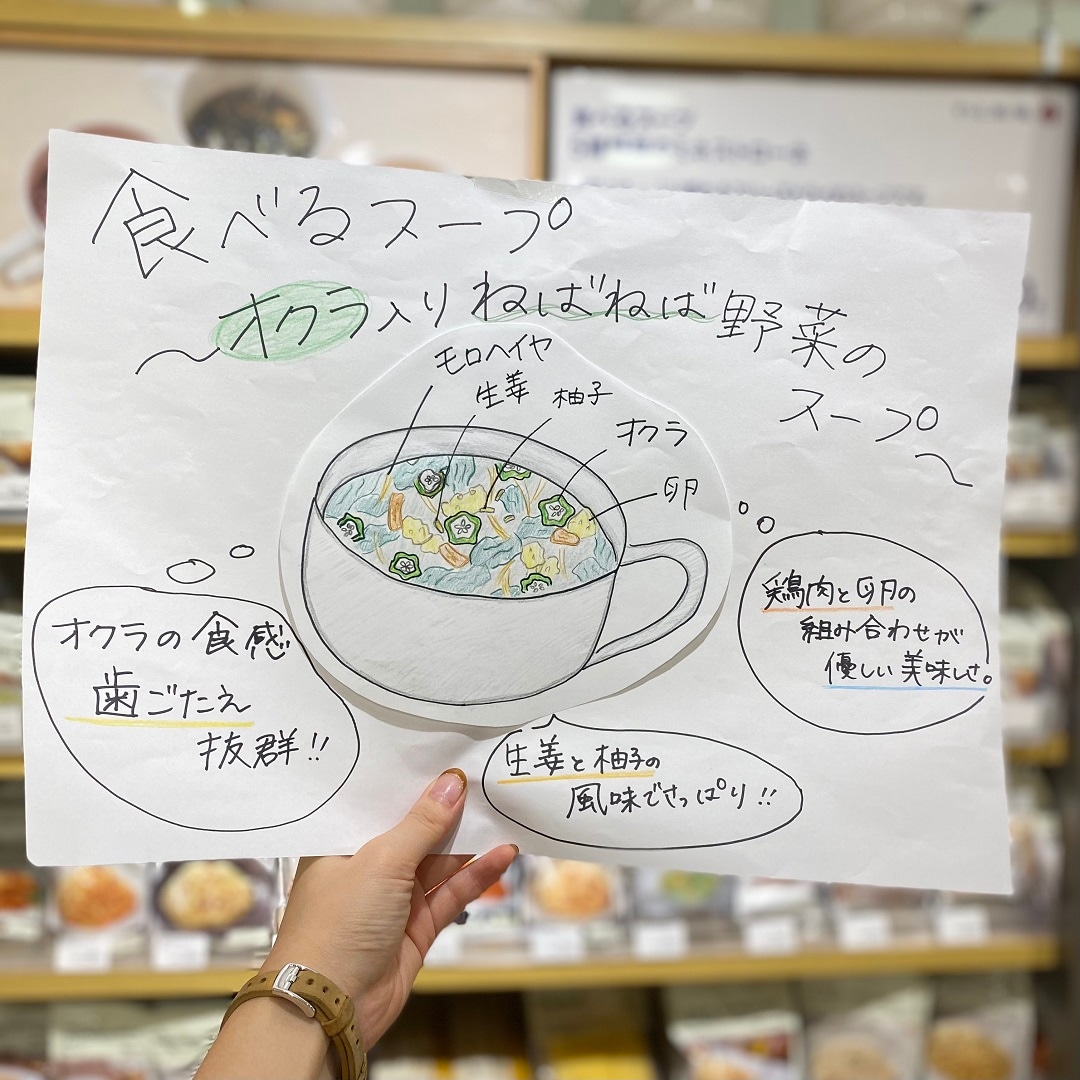 食べるスープ
〜オクラ入りねばねば野菜の
スープ〜
モロヘイヤ
生姜
柚子
オクラ
卵
オクラの食感
歯ごたえ
抜群!!
鶏肉と卵の
組み合わせが
優しい美味しさ。
生姜と柚子の
風味でさっぱり!!